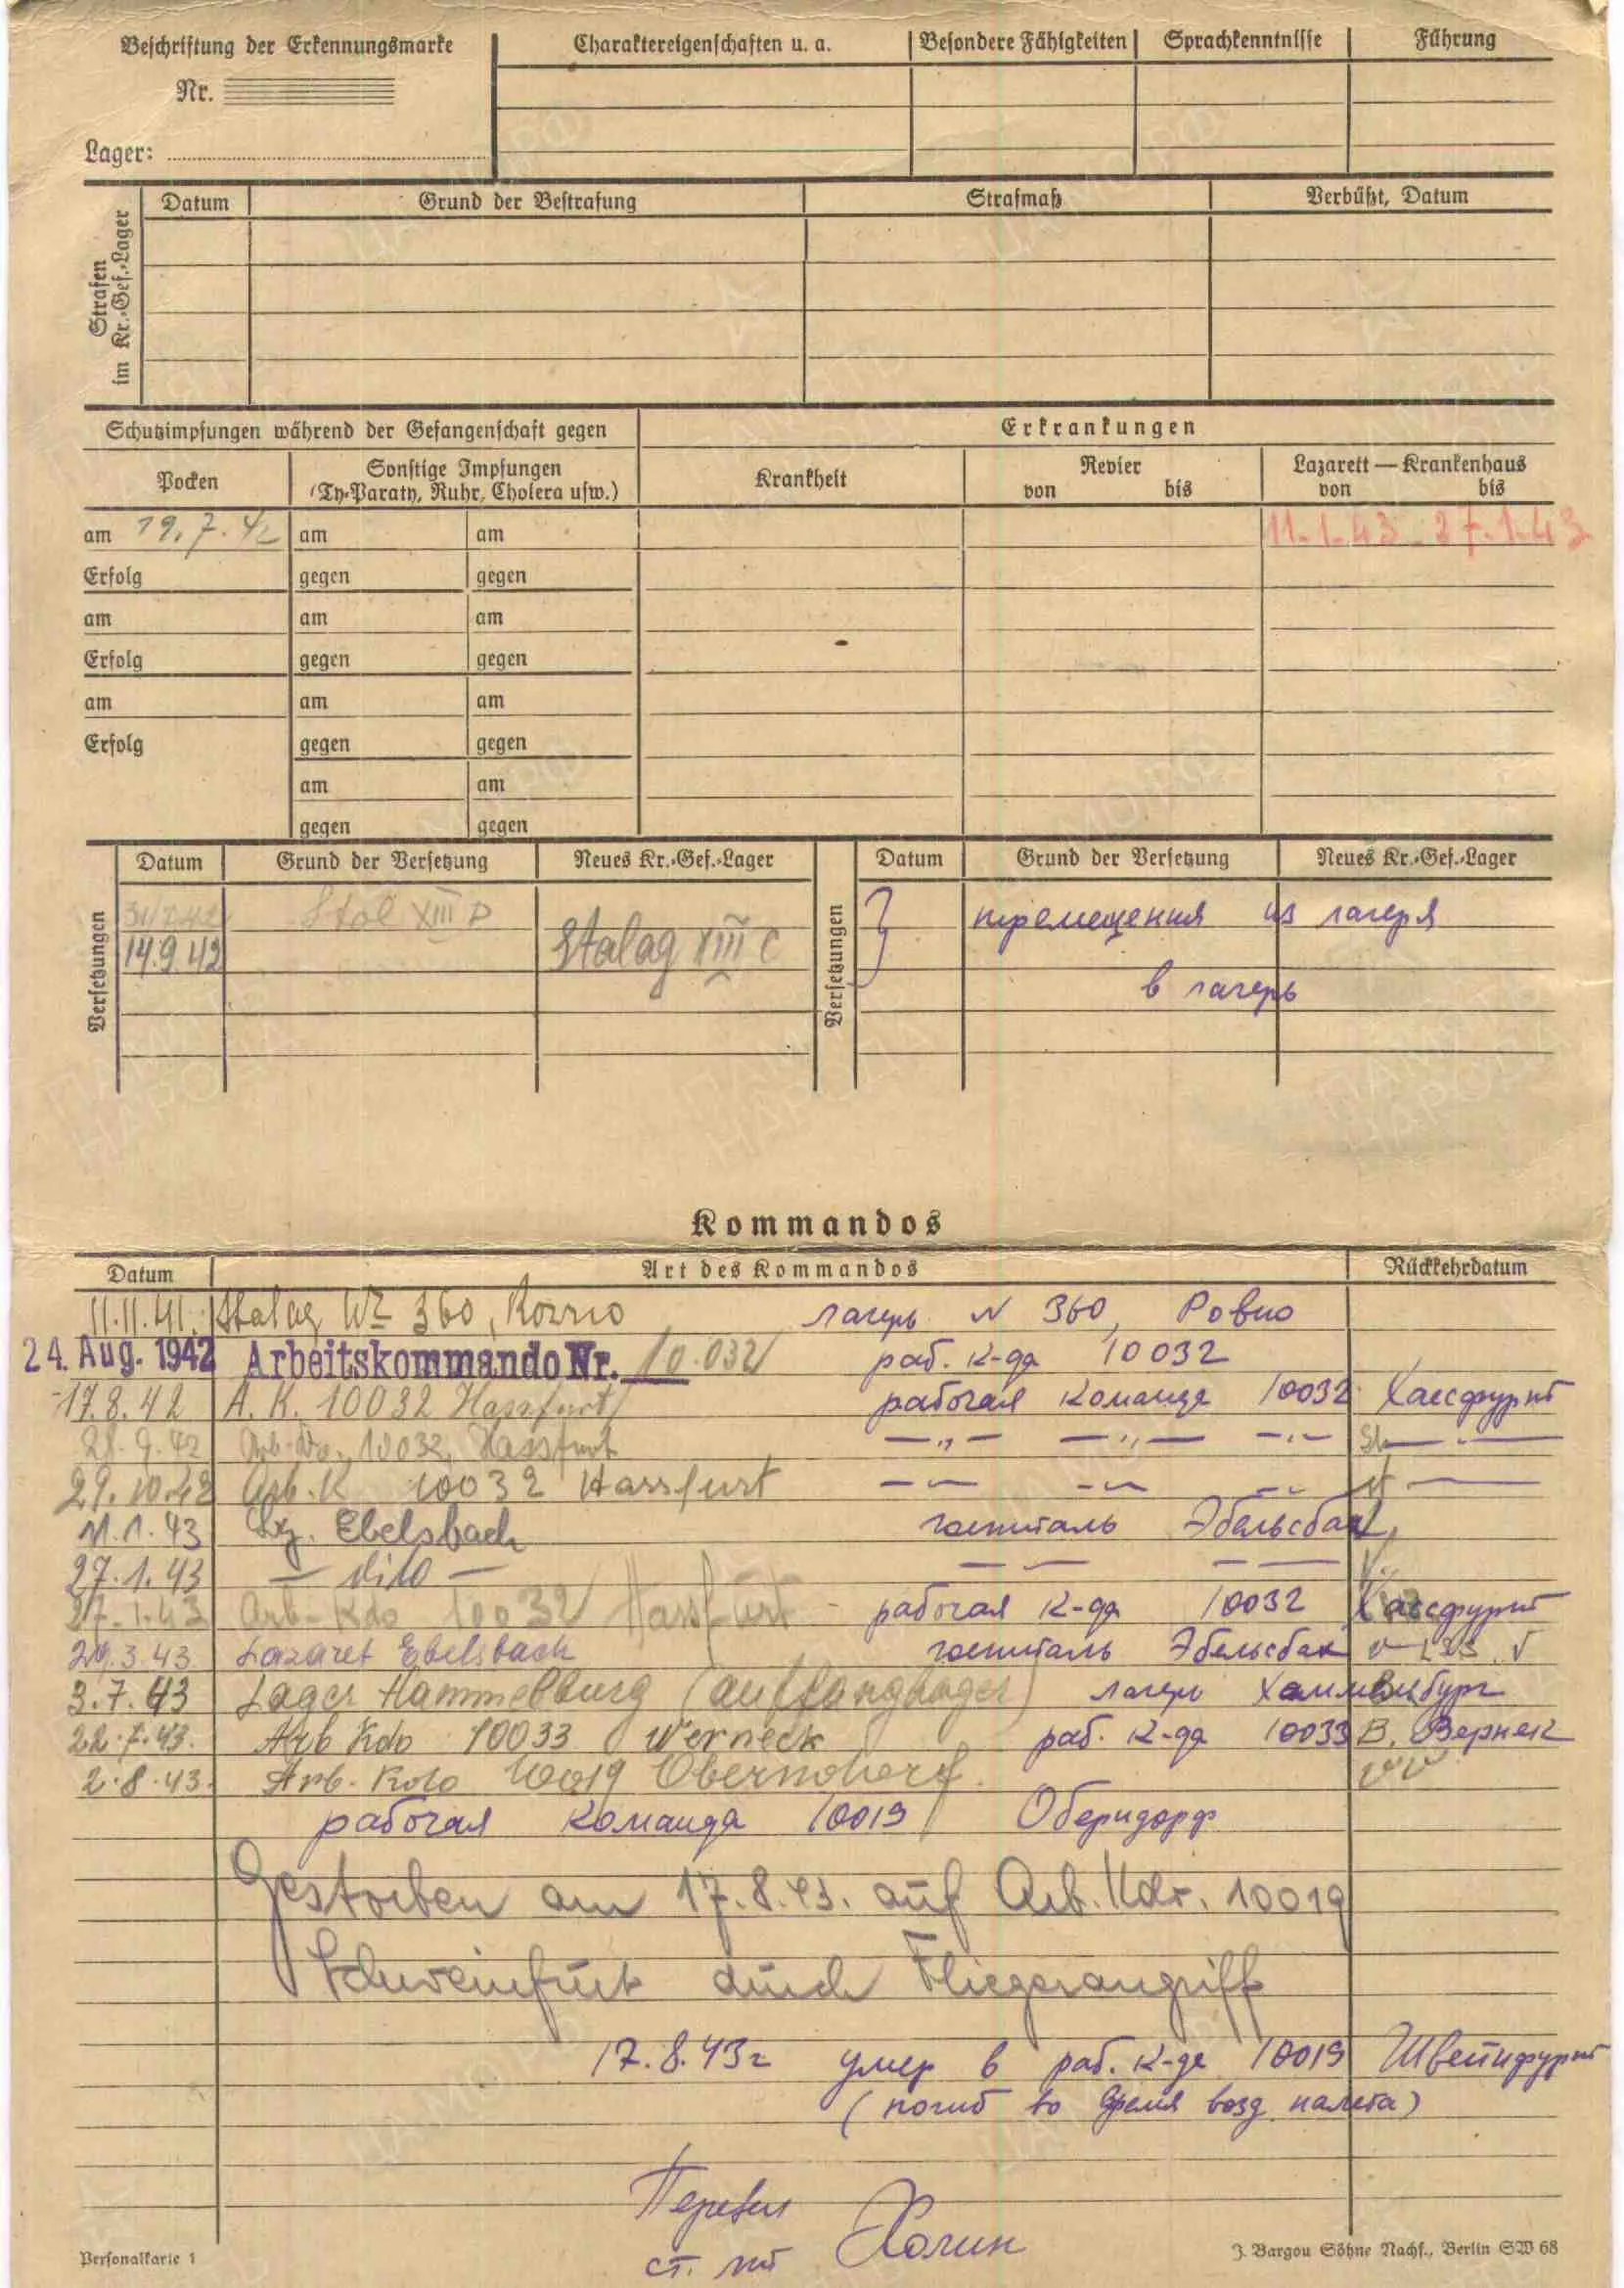 Beschriftung der Erkennungsmarke
Nr.
Lager:
Charaktereigenschaften u. a.
Besondere Fähigkeiten
Sprachkenntnisse
Führung
Strafen im Kr.-Gef.-Lager
Datum
Grund der Bestrafung
Strafmaß
Verbüßt, Datum
Schutzimpfungen während der Gefangenschaft gegen
Erkrankungen
Pocken
Sonstige Impfungen
(Ty-Paraty, Ruhr, Cholera usw.)
Krankheit
Revier
von bis
Lazarett — Krankenhaus
von bis
am 19.7.42 am am 11.1.43 - 27.1.43
Erfolg gegen gegen
am am am
Erfolg gegen gegen
am am am
Erfolg gegen gegen
am am
gegen gegen
Versetzungen
Datum Grund der Versetzung Neues Kr.-Gef.-Lager
Stal XIII D
14.9 42 Stalag XIII C
Versetzungen
Datum Grund der Versetzung Neues Kr.-Gef.-Lager
перемещения из лагеря
в лагерь
Kommandos
Datum Art des Kommandos Rückkehrdatum
11.11.41. Stalag No 360, Rowno лагерь N 360, Ровно
24. Aug. 1942 Arbeitskommando Nr. 10.032 раб. к-да 10032
17.8.42 A. K. 10032 Hassfurt рабочая команда 10032 Хассфурт
28.9.42 Arb-Ko. 10032, Hassfurt — „ — — „ — — „ —
29.10.42 Arb. K 10032 Hassfurt
11.1.43 Lz. Ebelsbach госпиталь Эбельсбах
27.1.43 — dito —
27.1.43 Arb-Kdo 10032 Hassfurt - рабочая к-да 10032 Хассфурт
29.3.43 Lazaret Ebelsbach госпиталь Эбельсбах
3.7.43 Lager Hammelburg (Auffanglager) лагерь Хаммельбург
22.7.43. Arb Kdo 10033 Werneck раб. к-да 10033 В. Вернек
2.8.43. Arb. Kdo 10019 Oberndorf.
рабочая команда 10019 Оберндорф
Gestorben am 17.8.43. auf Arb. Kdo. 10019
Schweinfurt durch Fliegerangriff
17.8.43г умер в раб. к-де 10019 Швейнфурт
(погиб во время возд. налета)
Перевел
ст. лт Холин
Personalkarte 1
J. Bargou Söhne Nachf., Berlin SW 68